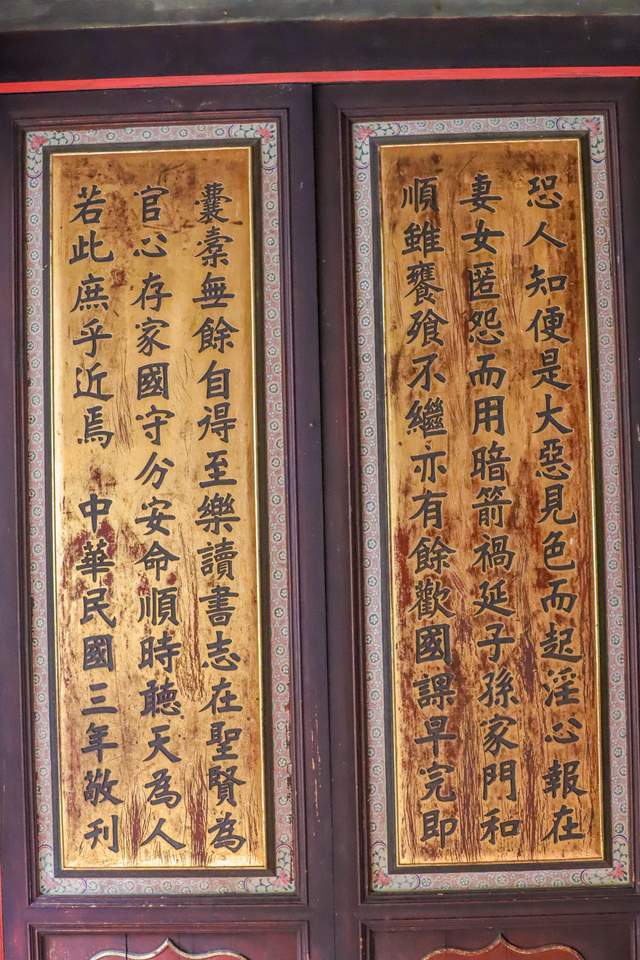 恐人知便是大惡見色而起淫心報在
妻女匿怨而用暗箭禍延子孫家門和
順雖饔飧不繼亦有餘歡國課早完即
囊橐無餘自得至樂讀書志在聖賢為
官心存家國守分安命順時聽天為人
若此庶乎近焉 中華民國三年敬刊